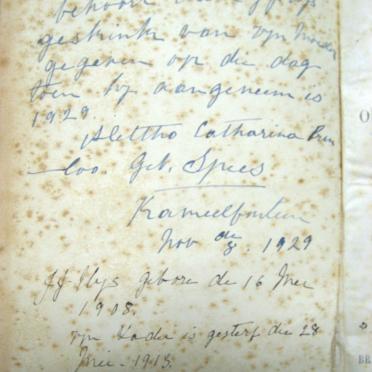 behoort
geskink van syn Moeder
gegeven op die dag
toen hy aangeneem is
1929
Alettha Catharina Prin
loo. Geb. Spies
Kameelfontein
Nov de 8. 1929
JJ Nys gebore de 16 Mei
1908.
syn Vader is gesterf die 28
Mei. 1913.
O
BR